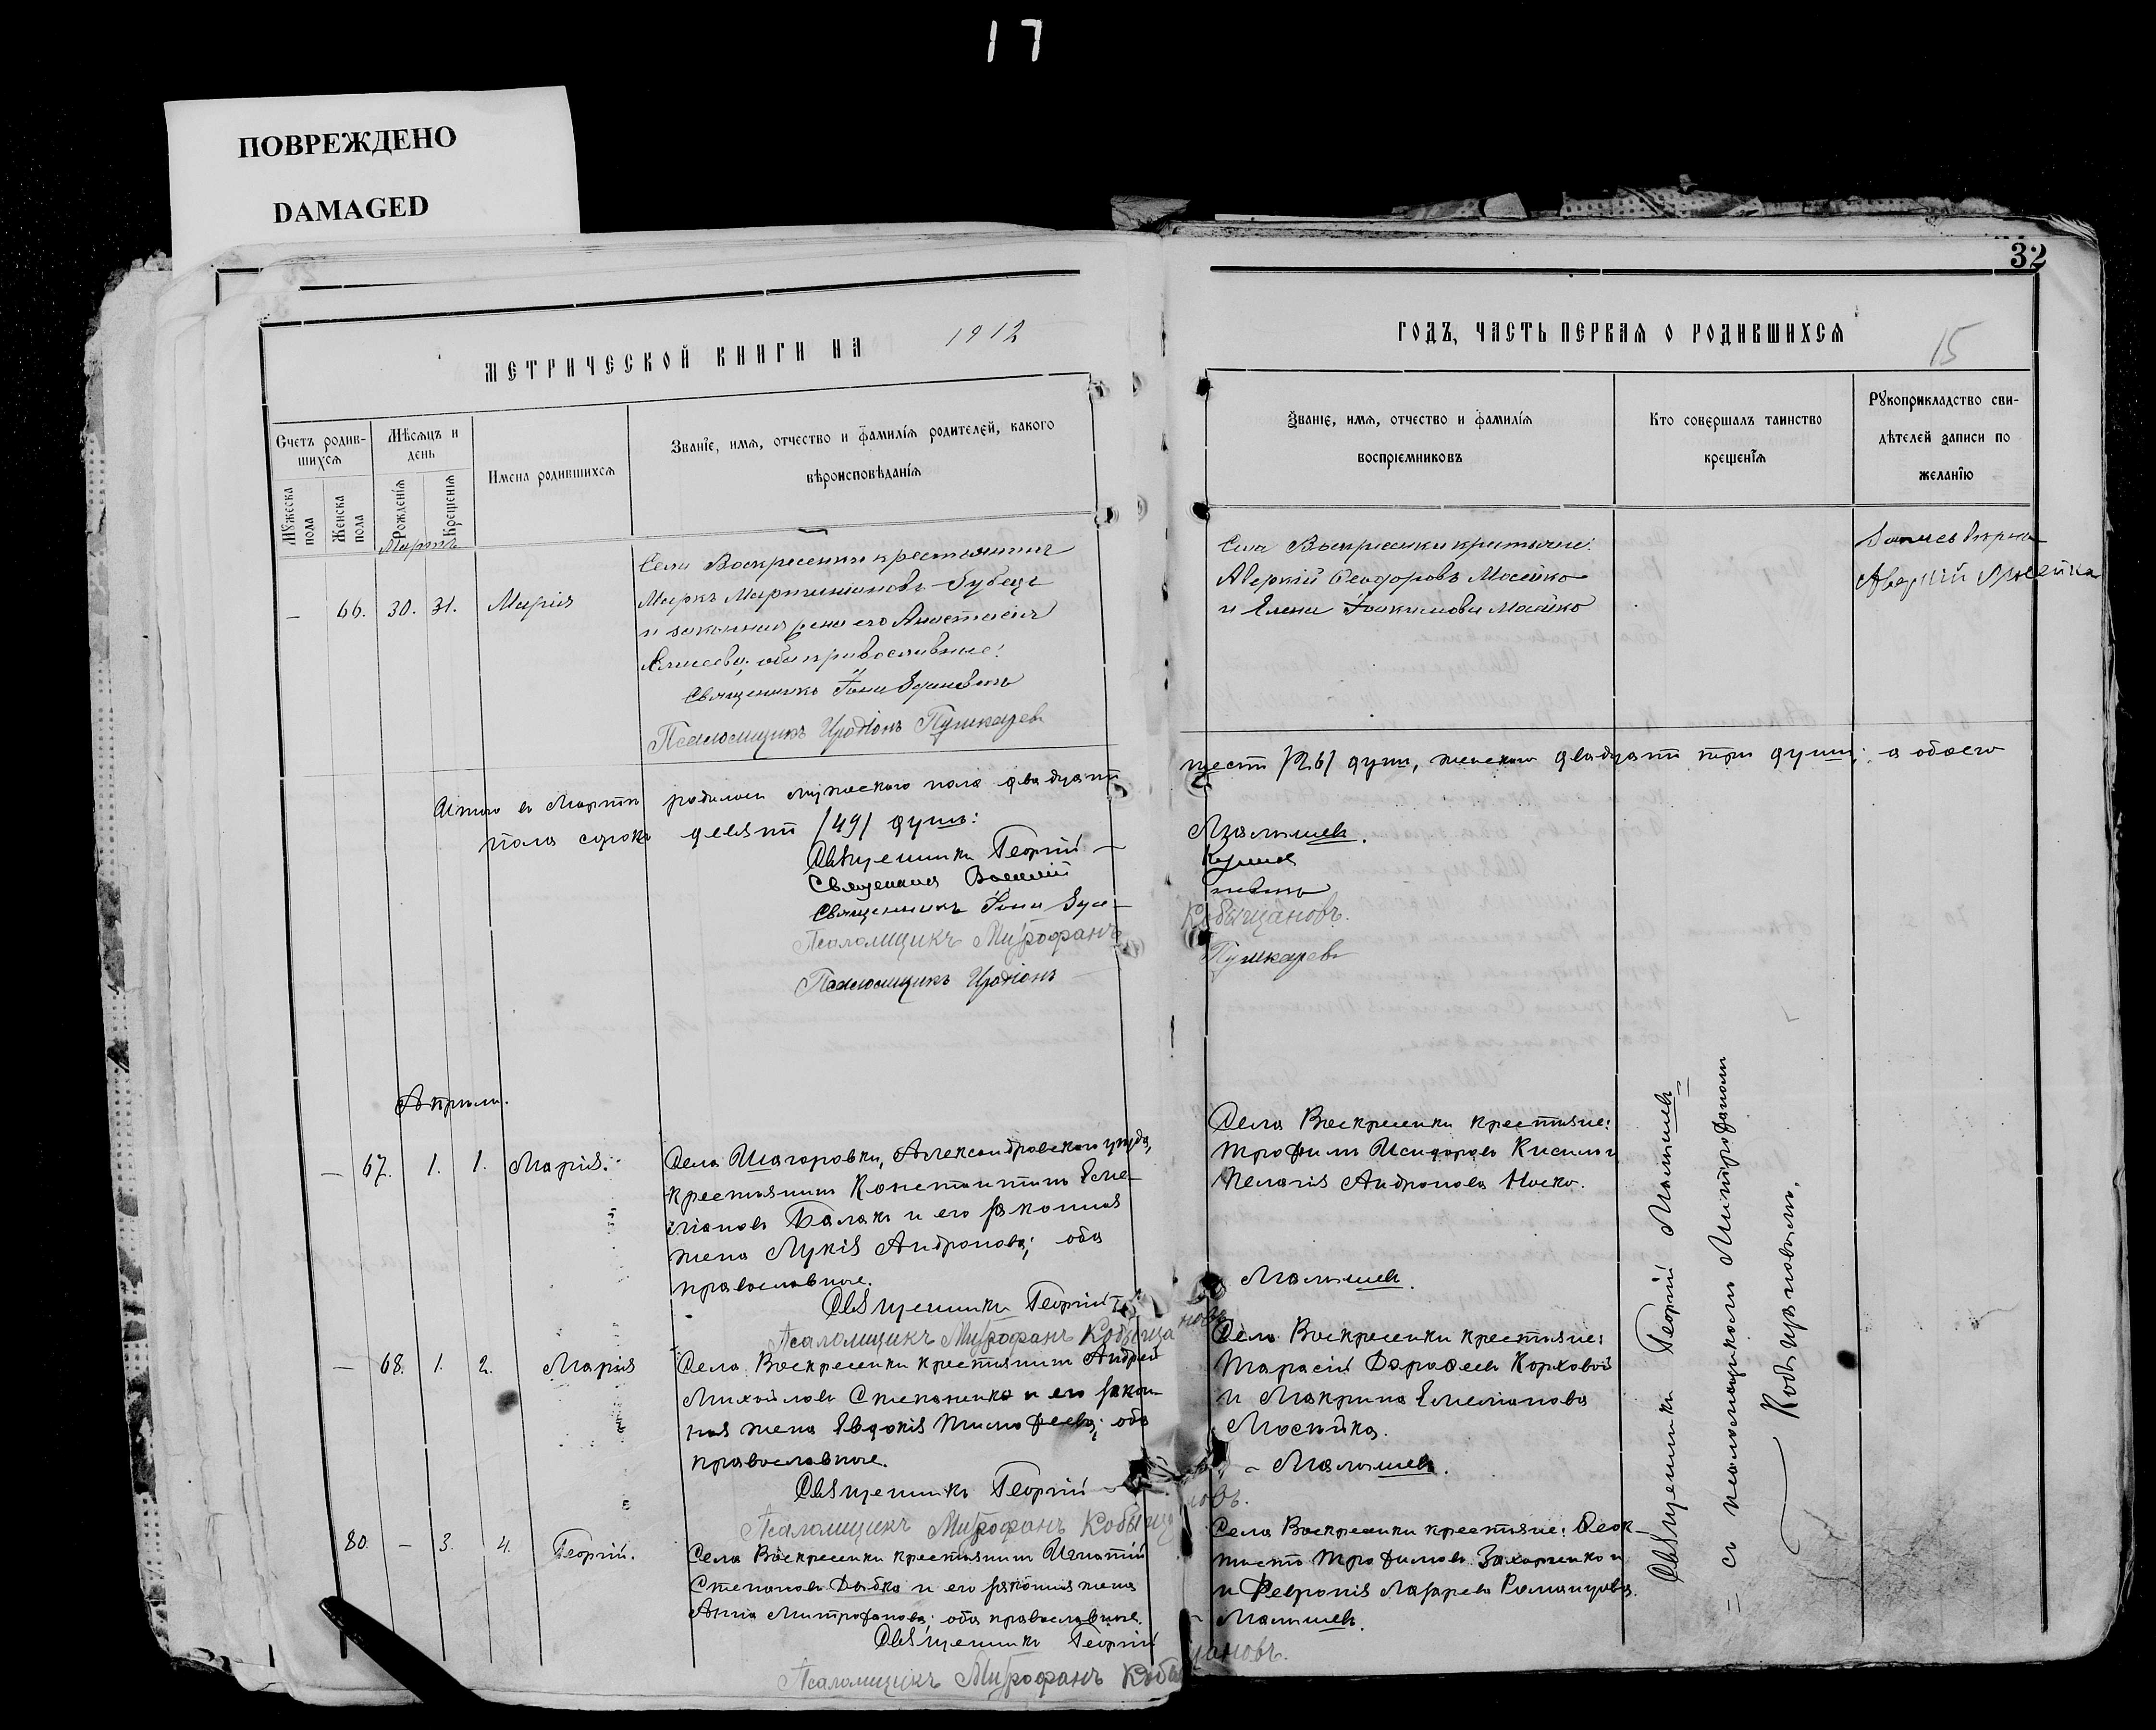 17
ПОВРЕЖДЕНО
DAMAGED
32
МЕТРИЧЕСКОЙ КНИГИ НА 1912
Счетъ родив-
шихся
Мужеска пола
Женска пола
Мѣсяцъ и
день
Рожденія
Крещенія
Имена родившихся
Званіе, имя, отчество и фамилія родителей, какого
вѣроисповѣданія
Мартъ
— 66. 30. 31. Марія
Села Воскресенки крестьянинъ
Маркъ Мартиніановъ Бубецъ
и законная жена его Анастасія
Алисеева, оба православные:
Священникъ Іона
Псаломщикъ Иродіонъ Пушкаревъ
Итого въ Мартѣ родилось мужескаго пола двадцать
пола сорокъ девять /49/ душъ:
Священникъ Георгій —
Священникъ Василій
Священникъ Іона
Псаломщикъ Митрофанъ
Псаломщикъ Иродіонъ
Апрѣль.
— 67. 1. 1. Марія.
Села Шагаровки, Александровскаго уѣзда,
крестьянинъ Константинъ Еме-
ліановъ Балакъ и его законная
жена Лукія Андронова; оба
православные.
Священникъ Георгій
Псаломщикъ Митрофанъ Кобыща
— 68. 1. 2. Марія
Села Воскресенки крестьянинъ Андрей
Михайловъ Степаненко и его закон-
ная жена Евдокія Тимофеева; оба
православные.
Священникъ Георгій —
Псаломщикъ Митрофанъ Кобыщ
80. — 3. 4. Георгій.
Села Воскресенки крестьянинъ Игнатій
Степановъ Дыбка и его законная жена
Анна Митрофанова; оба православные.
Священникъ Георгій
Псаломщикъ Митрофанъ Кобы
ГОДЪ, ЧАСТЬ ПЕРВАЯ О РОДИВШИХСЯ
15
Званіе, имя, отчество и фамилія
воспріемниковъ
Кто совершалъ таинство
крещенія
Рукоприкладство сви-
дѣтелей записи по
желанію
Села Воскресенки крестьяне:
Аверкій Феодоровъ Мосейко
и Елена Іоакимова Мосейко
Запись вѣрна
Аверкій Мосейко
шесть /26/ душъ, женскаго двадцать три души; а обоего
Малышевъ.
Кобыщановъ.
Пушкаревъ
Села Воскресенки крестьяне:
Трофимъ Исидоровъ Кисиль и
Пелагія Андронова Носко.
Малышевъ.
новъ.
Села Воскресенки крестьяне:
Тарасій Дорофеевъ Корховой
и Макрина Емеліанова
Мосейка.
— Малышевъ.
новъ.
Села Воскресенки крестьяне: Феок-
тистъ Трофимовъ Захарченко и
и Февронія Лазарева Романцова.
Малышевъ.
щановъ.
Священникъ Георгій Малышевъ
= съ псаломщикомъ Митрофаномъ
— Кобыщановымъ.